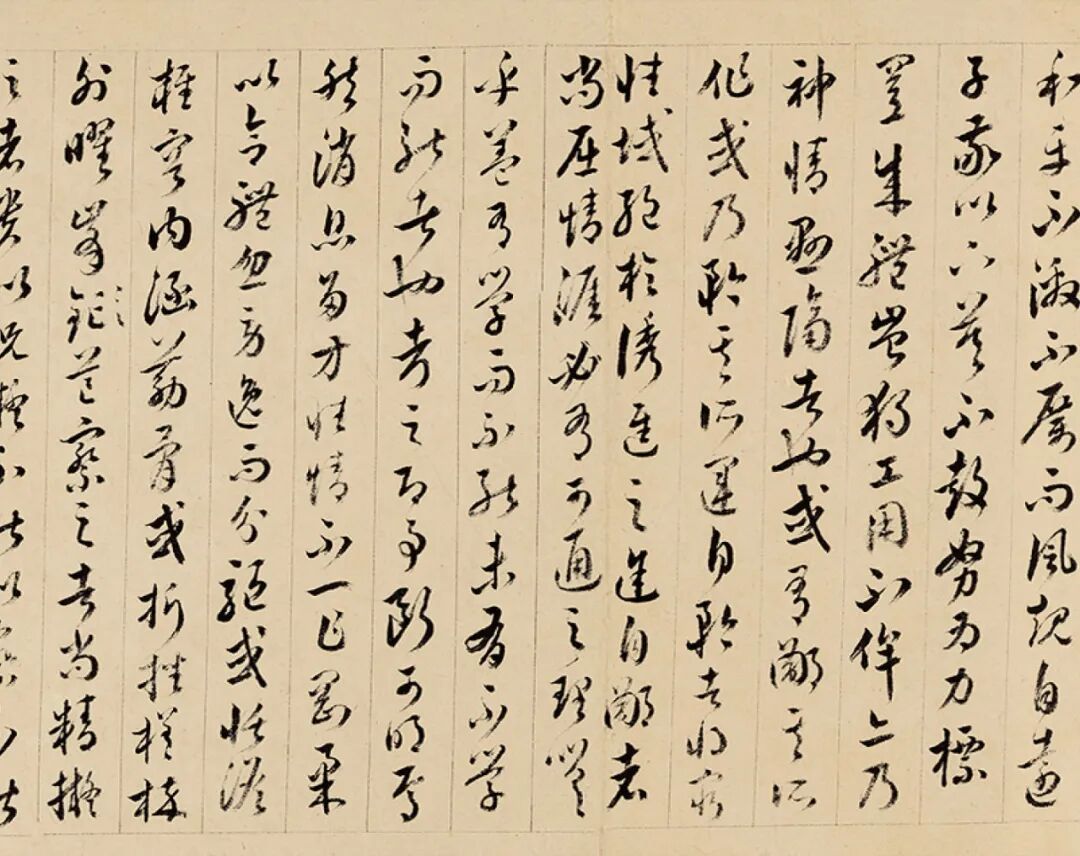 和平不激不厲而風規自遠
子敬以下莫不鼓努為力標
置成體豈獨工用不侔亦乃
神情懸隔者也或有鄙其所
作或乃矜其所運自矜者將窮
性域絕於誘進之途自鄙者
尚屈情涯必有可通之理嗟
乎蓋有學而不能未有不學
而能者也考之即事斷可明焉
然消息多方性情不一乍剛柔
以合體忽勞逸而分驅或恬憺
雍容內涵筋骨或折挫槎枿
外曜峯鋩芒察之者尚精擬
之者貴似況擬不能似察不能